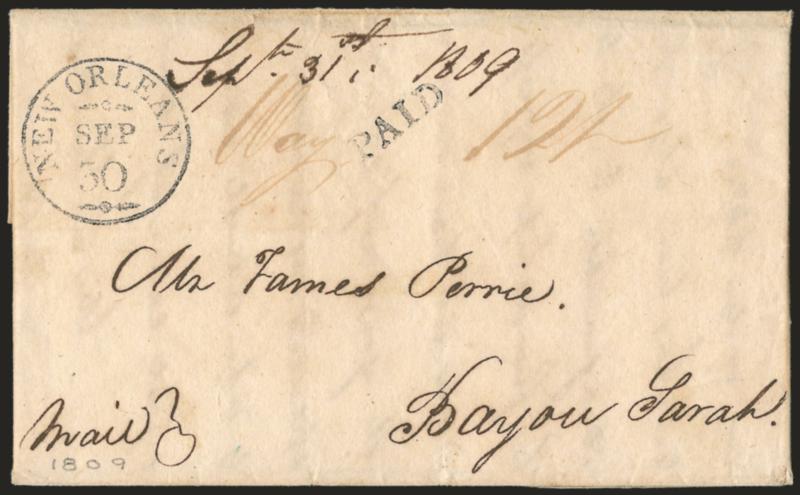 Septr. 31st, 1809
NEW ORLEANS
SEP
30
Way
PAID
12½
Mr James Perrie.
Bayou Sarah.
Mail
1809